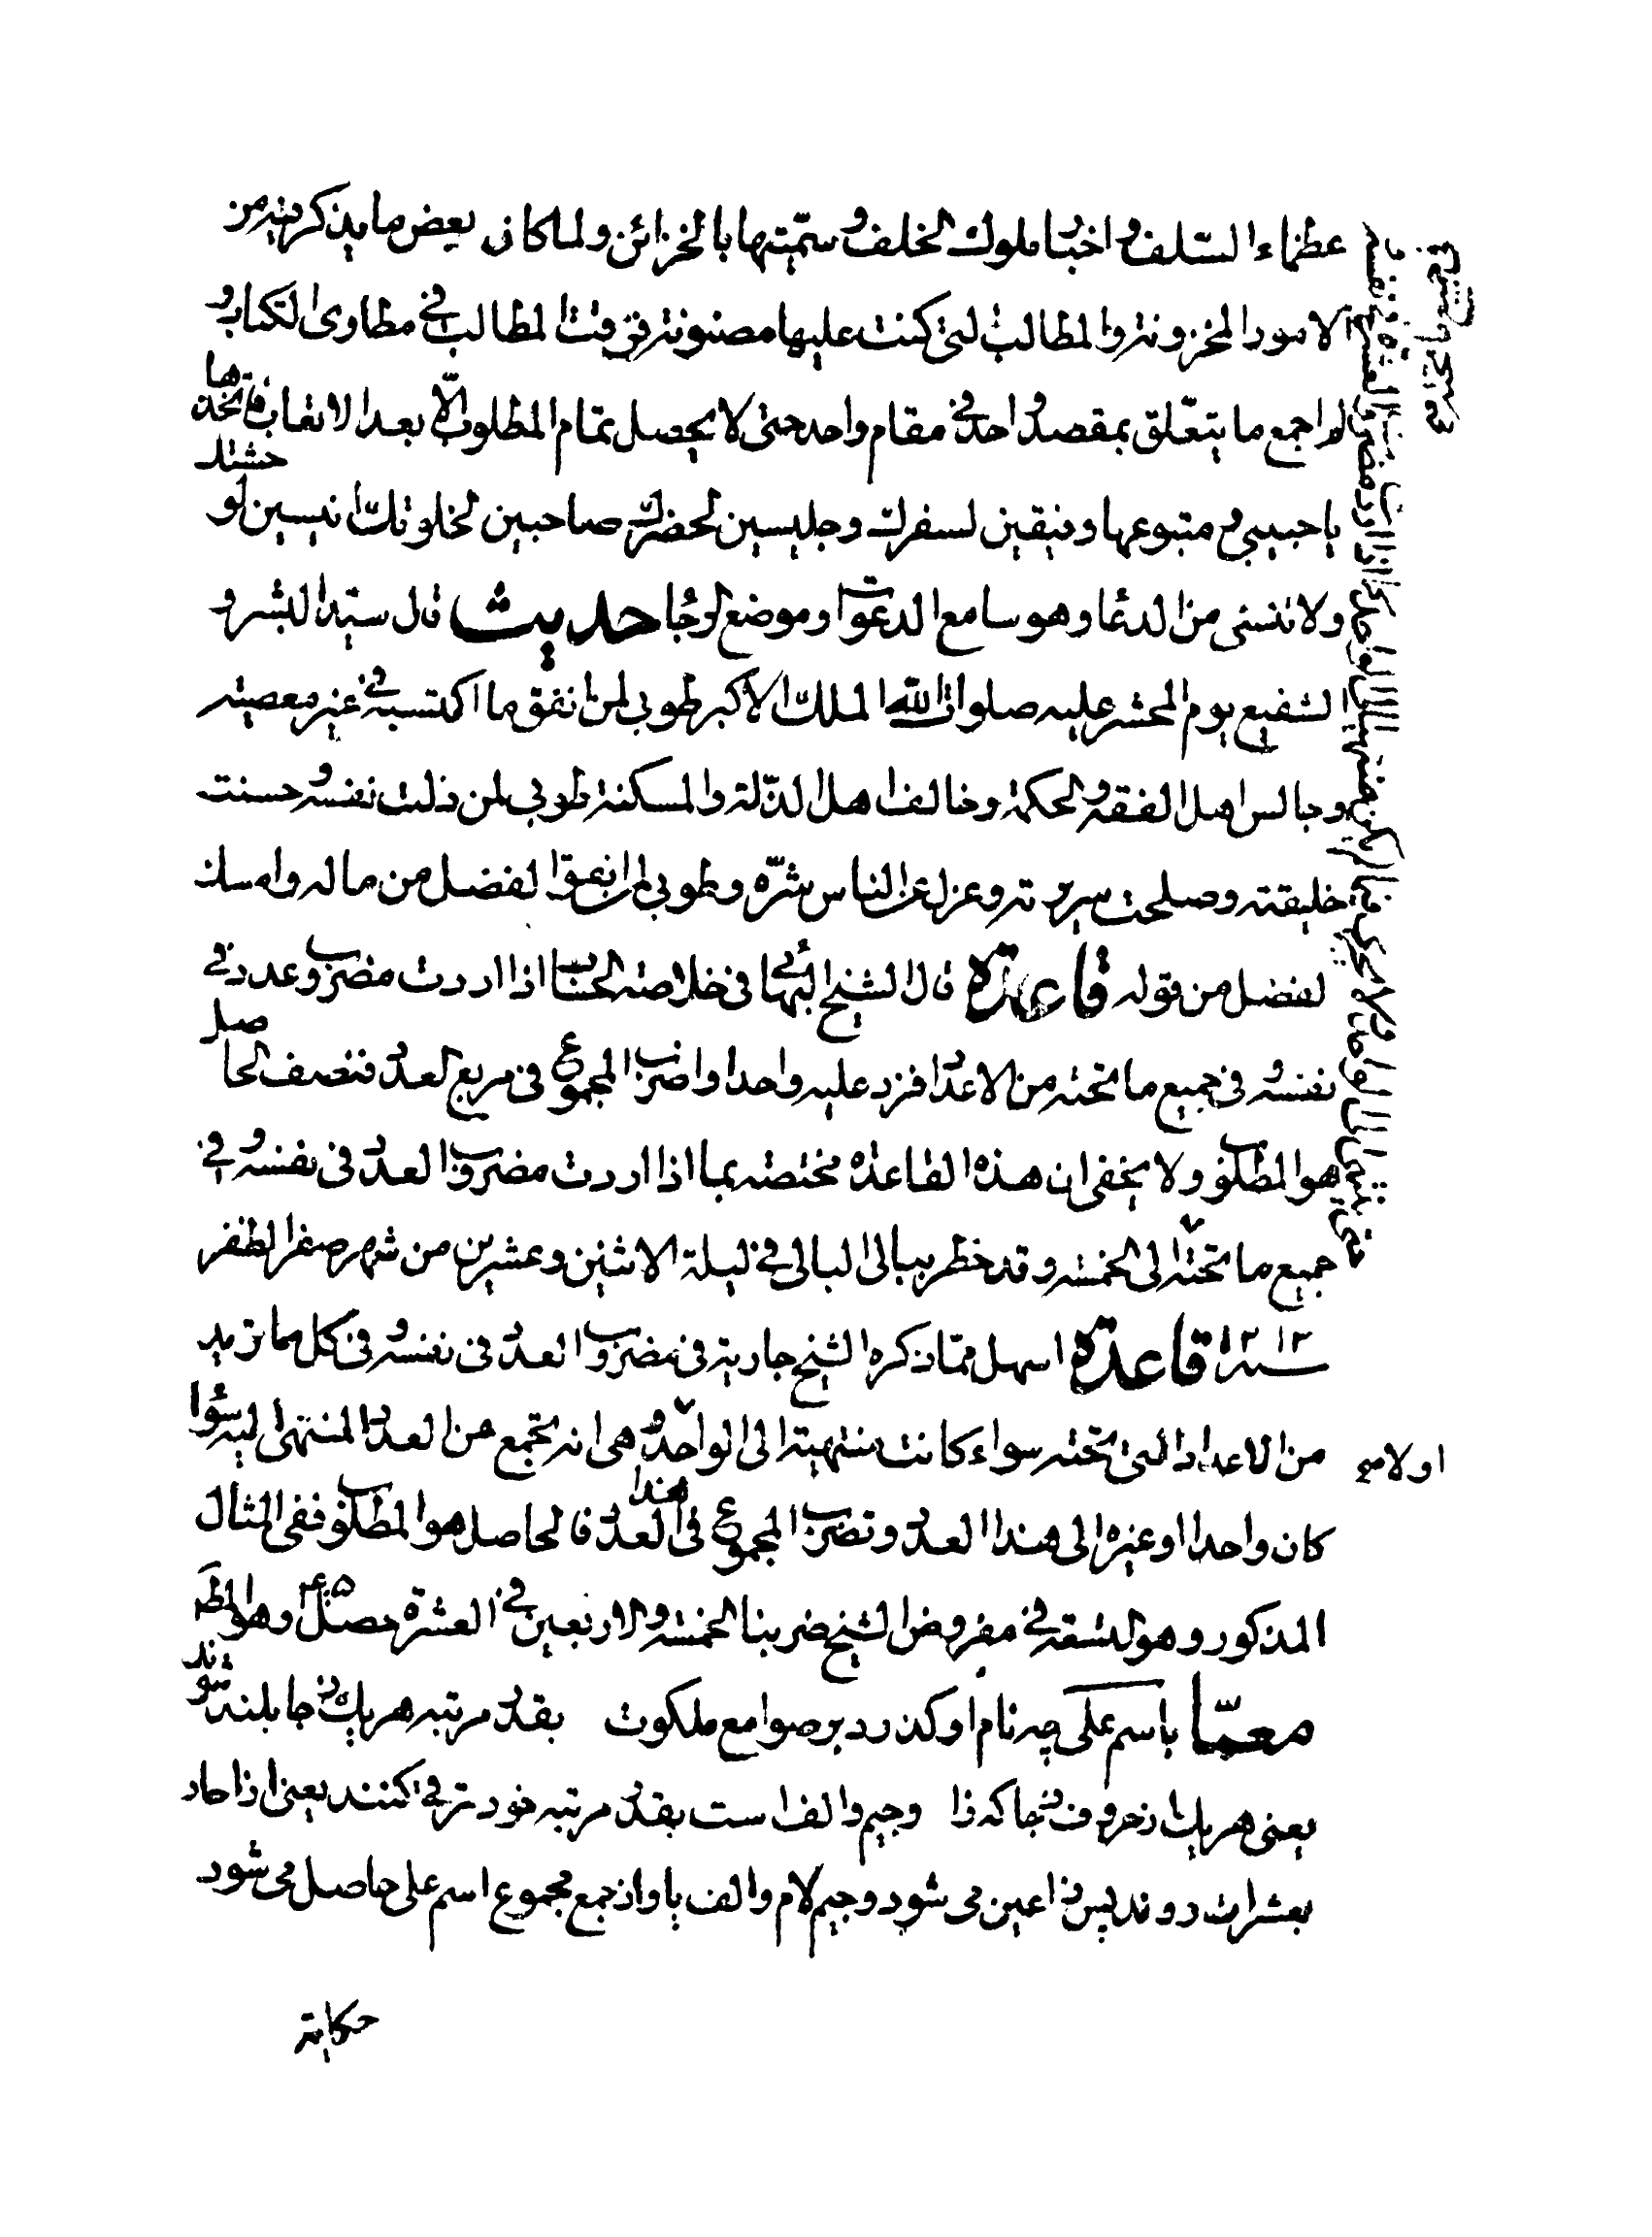 عظماء السلف و اخبار ملوك الخلف و سمّيتها بالخزائن و لما كان بعض ما يذكر فيه من
الامور المخزونة و المطالب التى كنت عليها مضنونة فرقت المطالب فى مطاوى الكتاب و
لم اجمع ما يتعلّق بمقصد واحد فى مقام واحد حتى لا يحصل تمام المطلوب الّا بعد الاتعاب فاتخذها
يا حبيبى مع متبوعها رفيقين لسفرك و جليسين لحضرك صاحبين لخلوتك انيسين لوحشتك
و لا تنسنى من الدعا و هو سامع الدعوات و موضع الرجا حديث قال سيد البشر و
الشفيع يوم المحشر عليه صلوات الله الملك الاكبر طوبى لمن انفق ما اكتسبه فى غير معصيته
و جالس اهل الفقه و الحكمة و خالف اهل الذّلة و المسكنة طوبى لمن ذلت نفسه و حسنت
خليقته و صلحت سريرته و عزل عن الناس شرّه و طوبى لمن انفق الفضل من ماله و امسك
الفضل من قوله قاعدة قال الشيخ البهائى فى خلاصة الحساب اذا اردت مضروب عدد فى
نفسه و فى جميع ما تحته من الاعداد فزد عليه واحدا و اضرب المجموع فى مربع العدد فنصف الحاصل
هو المطلوب و لا يخفى ان هذه القاعدة مختصة بما اذا اردت مضروب العدد فى نفسه و فى
جميع ما تحته الى الخمسة و قد خطر ببالى البالى فى ليلة الاثنين و عشرين من شهر صفر المظفر
سنة ١٢١٢ قاعدة اسهل مما ذكره الشيخ جارية فى مضروب العدد فى نفسه و فى كل ما تريد
من الاعداد التى تحته سواء كانت منتهية الى الواحد و هى انه تجمع من العدد المنتهى اليه سواء
اولا
كان واحدا او غيره الى هذا العدد و تضرب المجموع فى هذا العدد فالحاصل هو المطلوب ففى المثال
المذكور و هو التسعة فى مفروض الشيخ ضربنا الخمسة و الاربعين فى العشرة حصل و هو المط
معمّا باسم على چه نام او گذرد بر صوامع ملكوت بقدر مرتبه هر يك ز جا بلند شوند
يعنى هر يك از حروف ز جا كه زا و جيم و الف است بقدر مرتبه خود ترقى كنند يعنى از احاد
بعشرات روند پس زا عين مى شود و جيم لام و الف يا و از جمع مجموع اسم على حاصل مى شود
حكاية